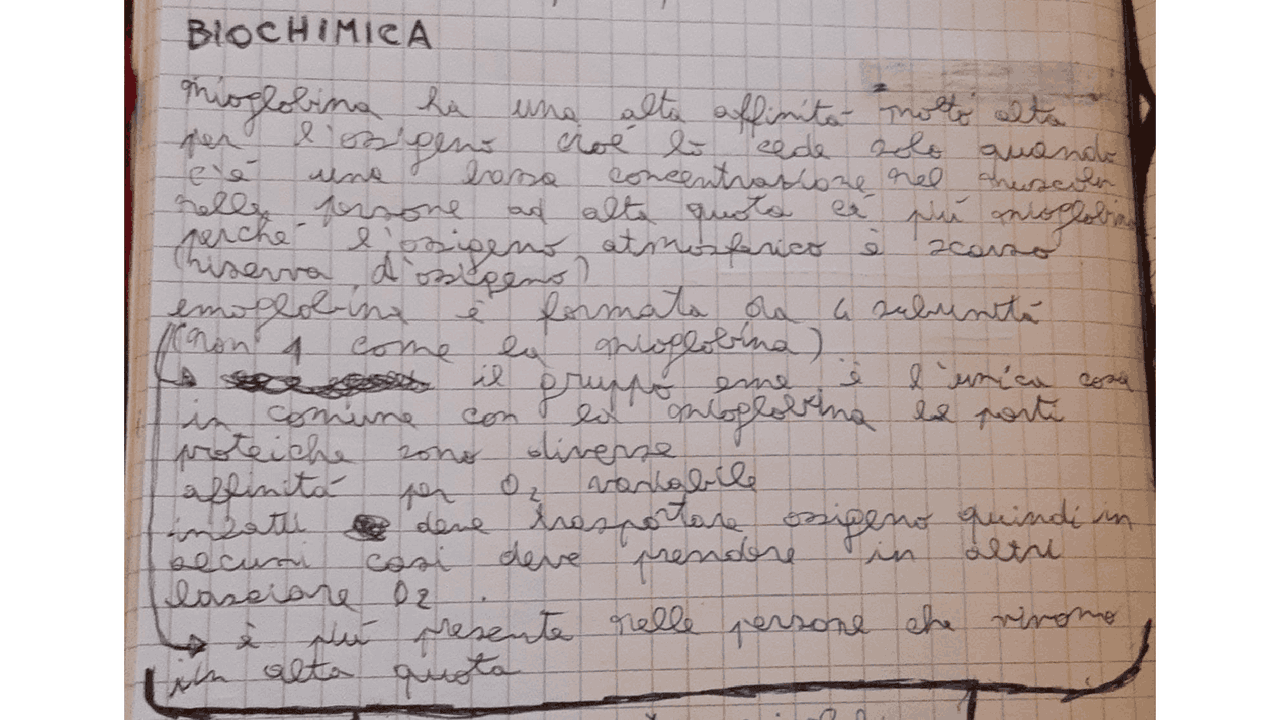 BIOCHIMICA
mioglobina ha una alta affinità molto alta
per l'ossigeno cioè lo cede solo quando
c'è una bassa concentrazione nel
nelle persone ad alta quota c'è più mioglobina
perché l'ossigeno atmosferico è scarso
(riserva d'ossigeno)
emoglobina è formata da 4 subunità
(non 1 come la mioglobina)
il gruppo eme è l'unica cosa
in comune con la mioglobina le parti
proteiche sono diverse
affinità per O2 variabile
infatti deve trasportare ossigeno quindi in
alcuni casi deve prendere in altri
lasciare O2.
è più presente nelle persone che vivono
in alta quota